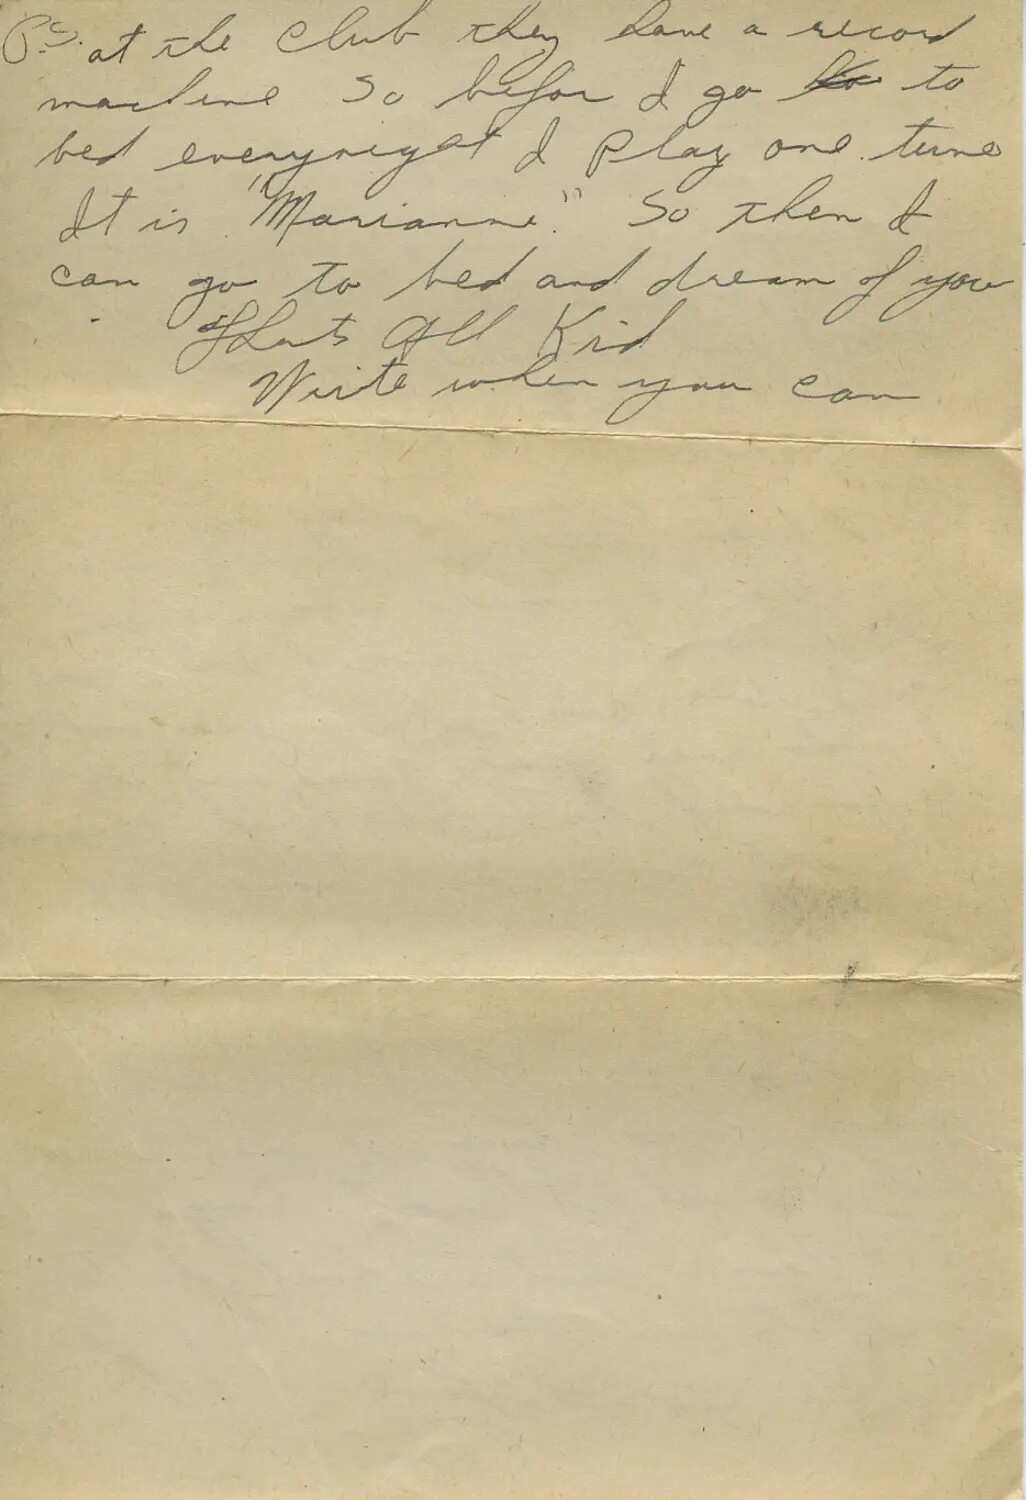 P.S. at the Club they have a record
machine So befor I go to
bed everynight I play one tune
It is "Marianne". So then I
can go to bed and dream of you
Thats All Kid
Write when you can